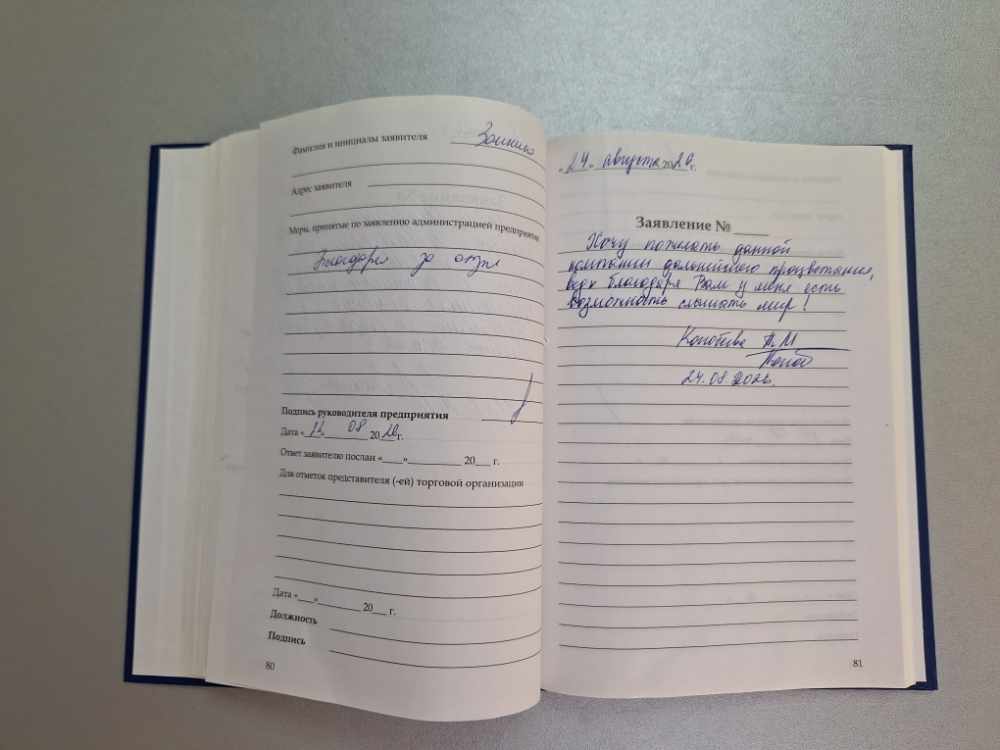 Фамилия и инициалы заявителя
Адрес заявителя
Меры, принятые по заявлению администрацией предприятия
Благодарю за отзыв
Подпись руководителя предприятия
Дата « » 08 2020г.
Ответ заявителю послан «___»_________ 20___ г.
Для отметок представителя (-ей) торговой организации
Дата «___»________ 20___ г.
Должность
Подпись
80
«24» августа 2020г.
Заявление № ____
Хочу пожелать данной
компании дальнейшего процветания,
ведь благодаря Вам у меня есть
возможность слышать мир!
24.08.2020
81